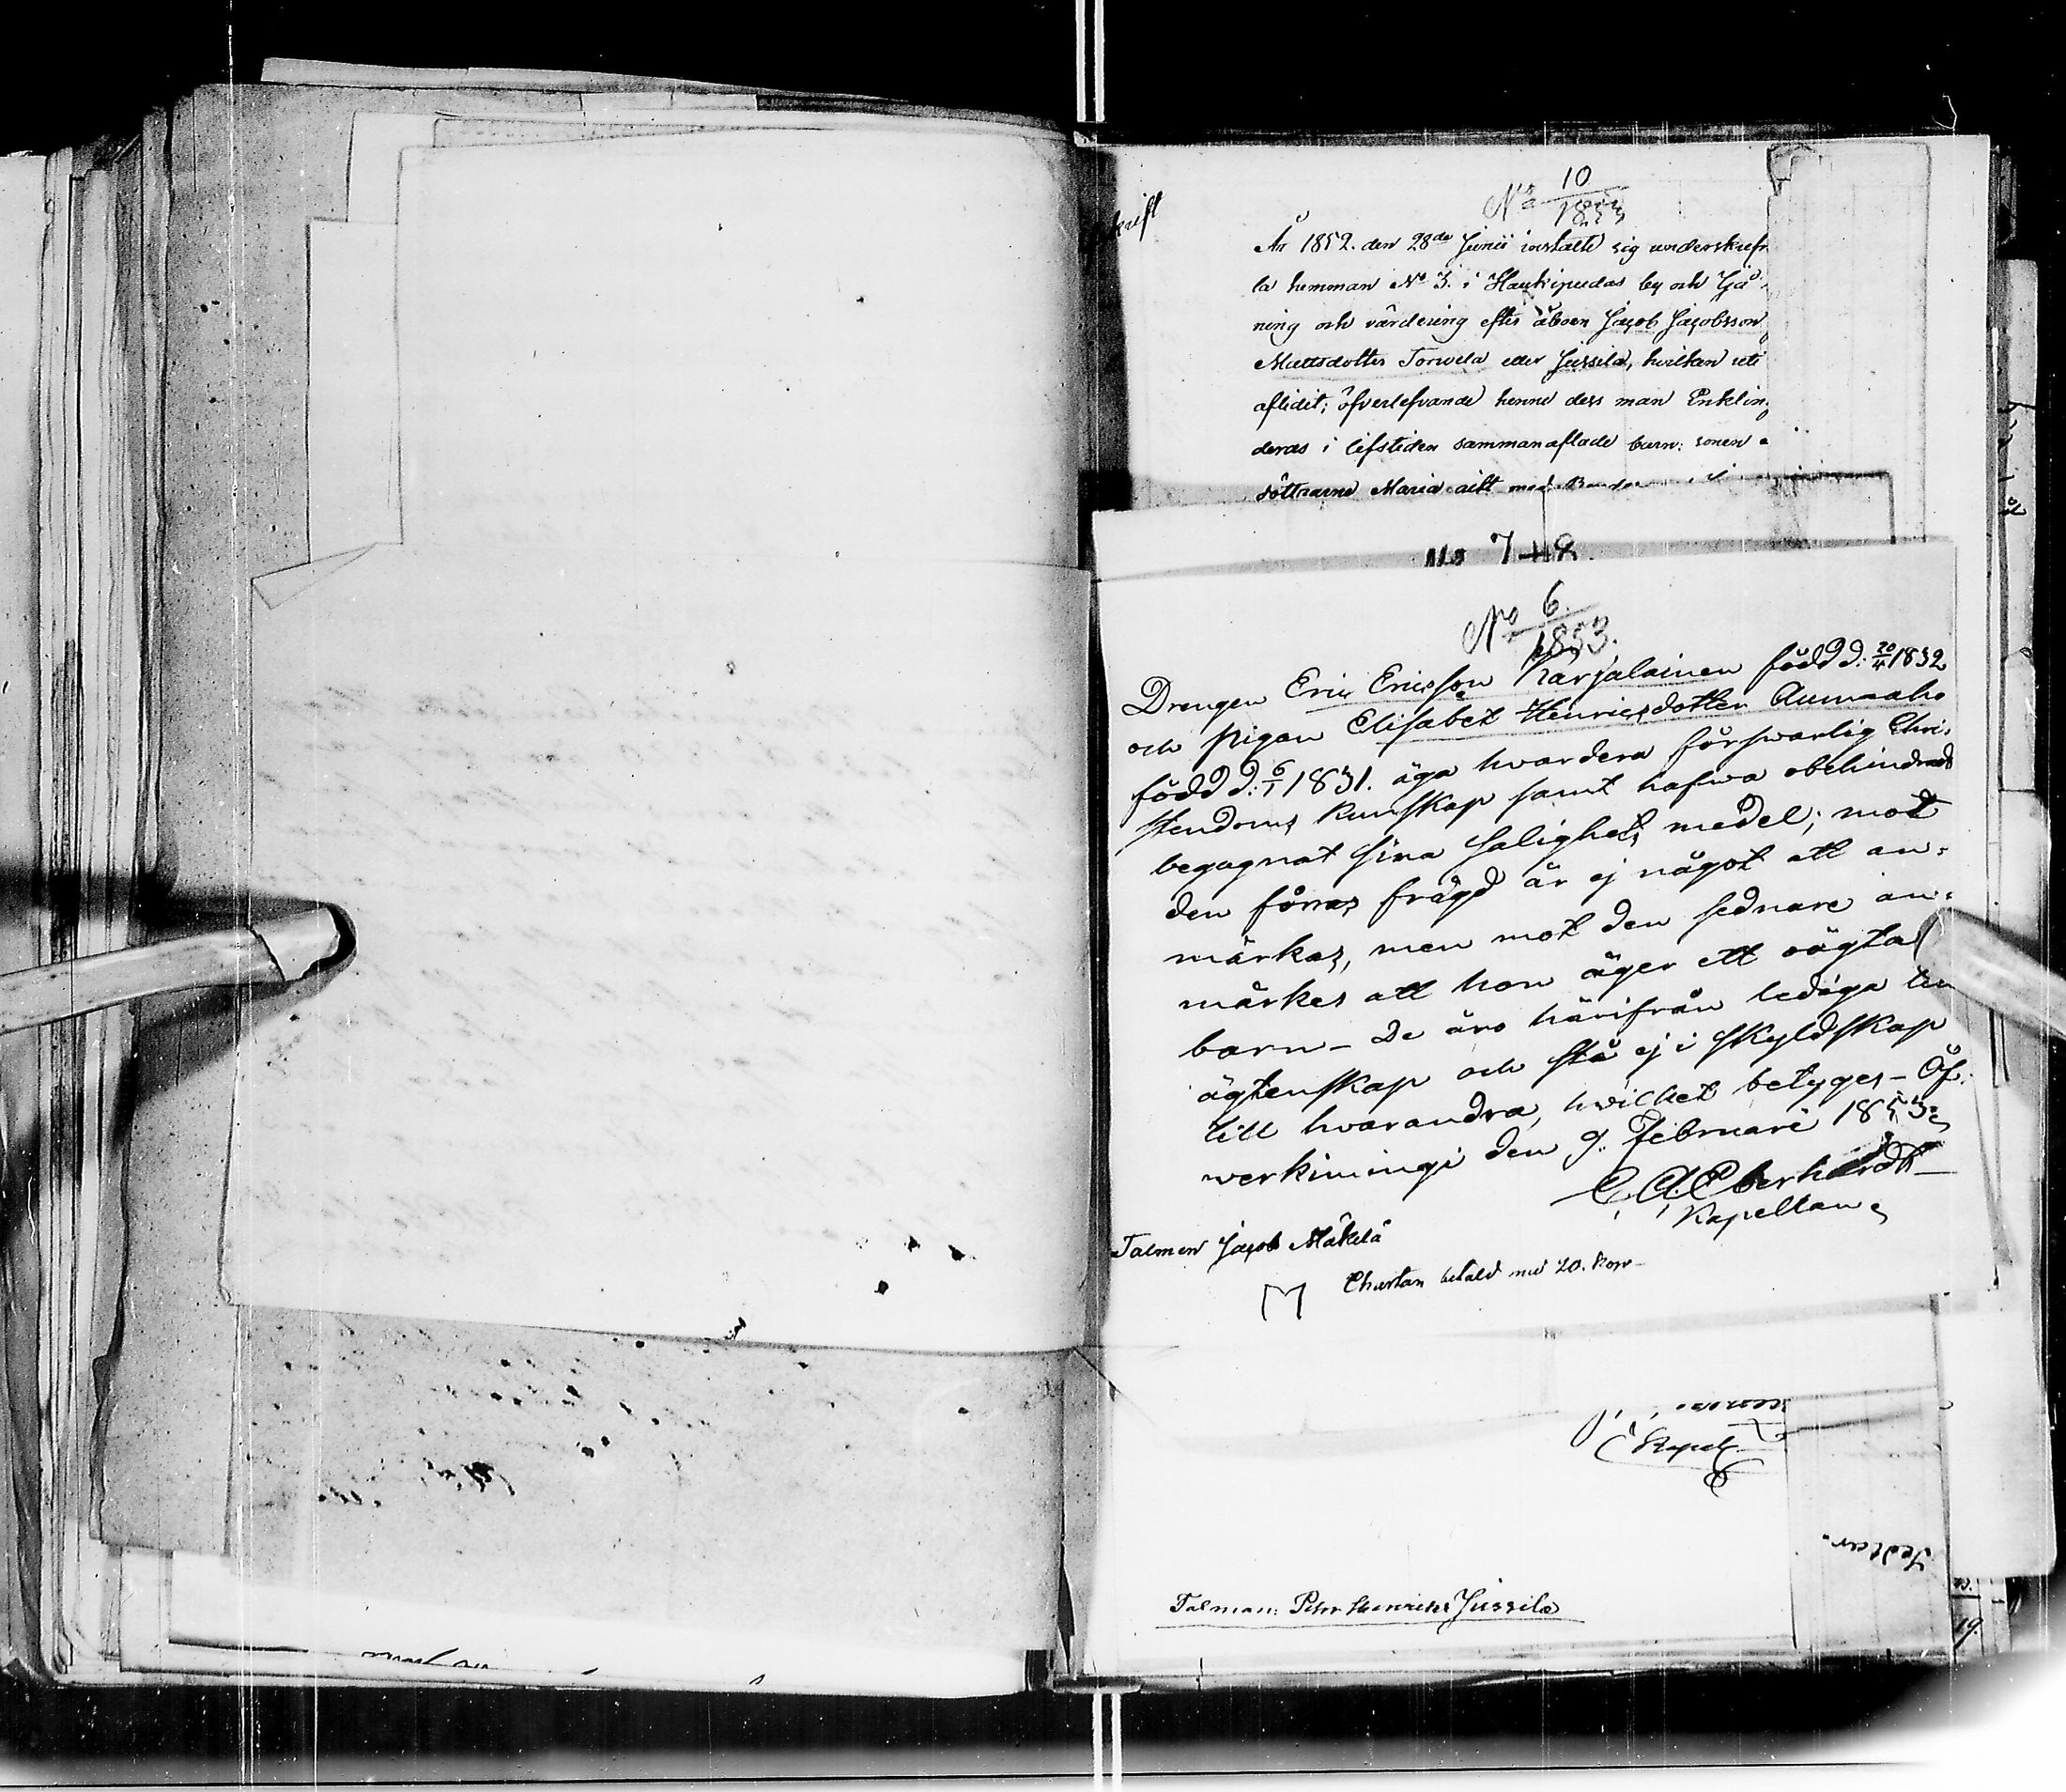 krift
No 10
1853
År 1852. den 28de Junii instälte sig underskrefn
la hemman No 3. i Haukipudas by och Gå
ning och värdering efter åboen Jacob Jacobsson
Mattsdotter Torvela eller Jussila, hvilken
aflidit; öfverlefvande henne dess man Enklin
deras i lifstiden sammanaflade barn: sonen
döttrarne Maria gift med
No 7
No 6
1853.
Drengen Eric Ericsson Karjalainen född d. 20/4 1832
och pigan Elisabet Henricsdotter Aumaaho
född d. 6/1 1831. äga hvardera försvarlig Chri-
stendoms kunskap samt hafwa obehindradt
begagnat sina salighets medel; mot
den förras frägd är ej något att an-
märkas, men mot den sednare an-
märkes att hon äger ett oägta
barn - De äro härifrån lediga till
ägtenskap och stå ej i skyldskap
till hvarandra, hvilket betyges - Öf-
werkiimingi den 9. Februari 1853.
C. A. Eberhardt
Kapellan
Talman Jacob Mäkelä
Chartan betald med 20. kop
Kapel
Talman: Petter Henriks Jussila
Sedlar.
19.